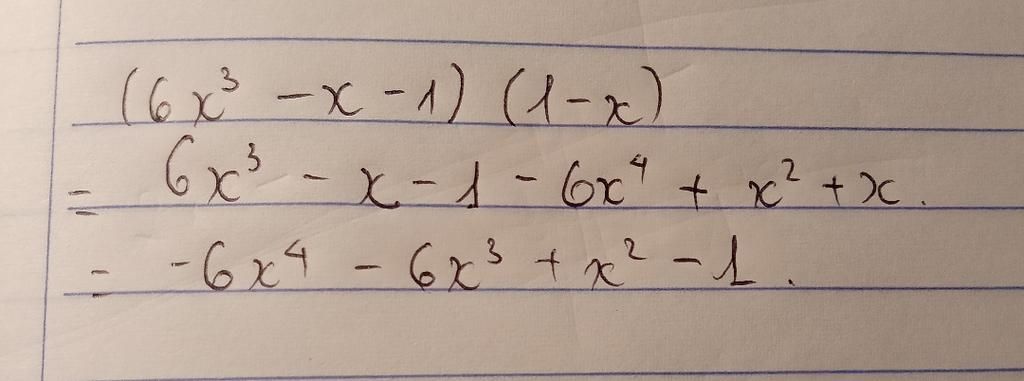 (6x³ - x - 1) (1 - x)
= 6x³ - x - 1 - 6x⁴ + x² + x.
= -6x⁴ - 6x³ + x² - 1.